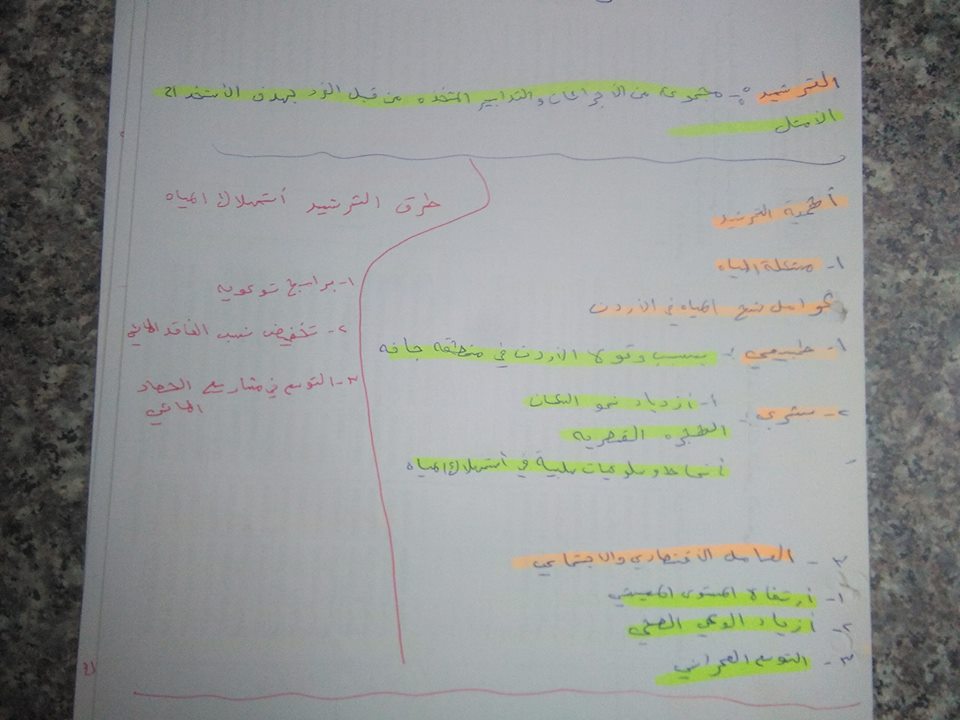 الترشيد :- مجموعة من الأجراءات والتدابير المتخذه من قبل الفرد بهدف الأستخدام
الأمثل
أهمية الترشيد
١- مشكلة المياه
عوامل شح المياه في الأردن
١- طبيعي :- بسبب وقوع الأردن في منطقة جافه
٢- بشري :- ١- أزدياد نمو السكان
الهجره القسرية
أنماط وسلوكيات سلبية في أستهلاك المياه
٣- العامل الأقتصادي والاجتماعي
١- أرتفاع المستوى المعيشي
٢- أزياد الوعي الصحي
٣- التوسع العمراني
طرق الترشيد أستهلاك المياه
١- برامج توعويه
٢- تخفيض نسب الفاقد المائي
٣- التوسع في مشاريع الحصاد
المائي